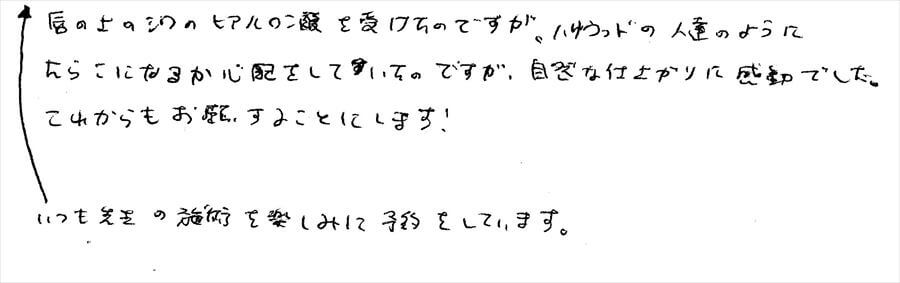 唇の上のシワのヒアルロン酸を受けたのですが、ハリウッドの人達のように
たらこになるか心配をしていたのですが、自然な仕上がりに感動でした。
これからもお願いすることにします!
いつも先生の施術を楽しみに予約をしています。